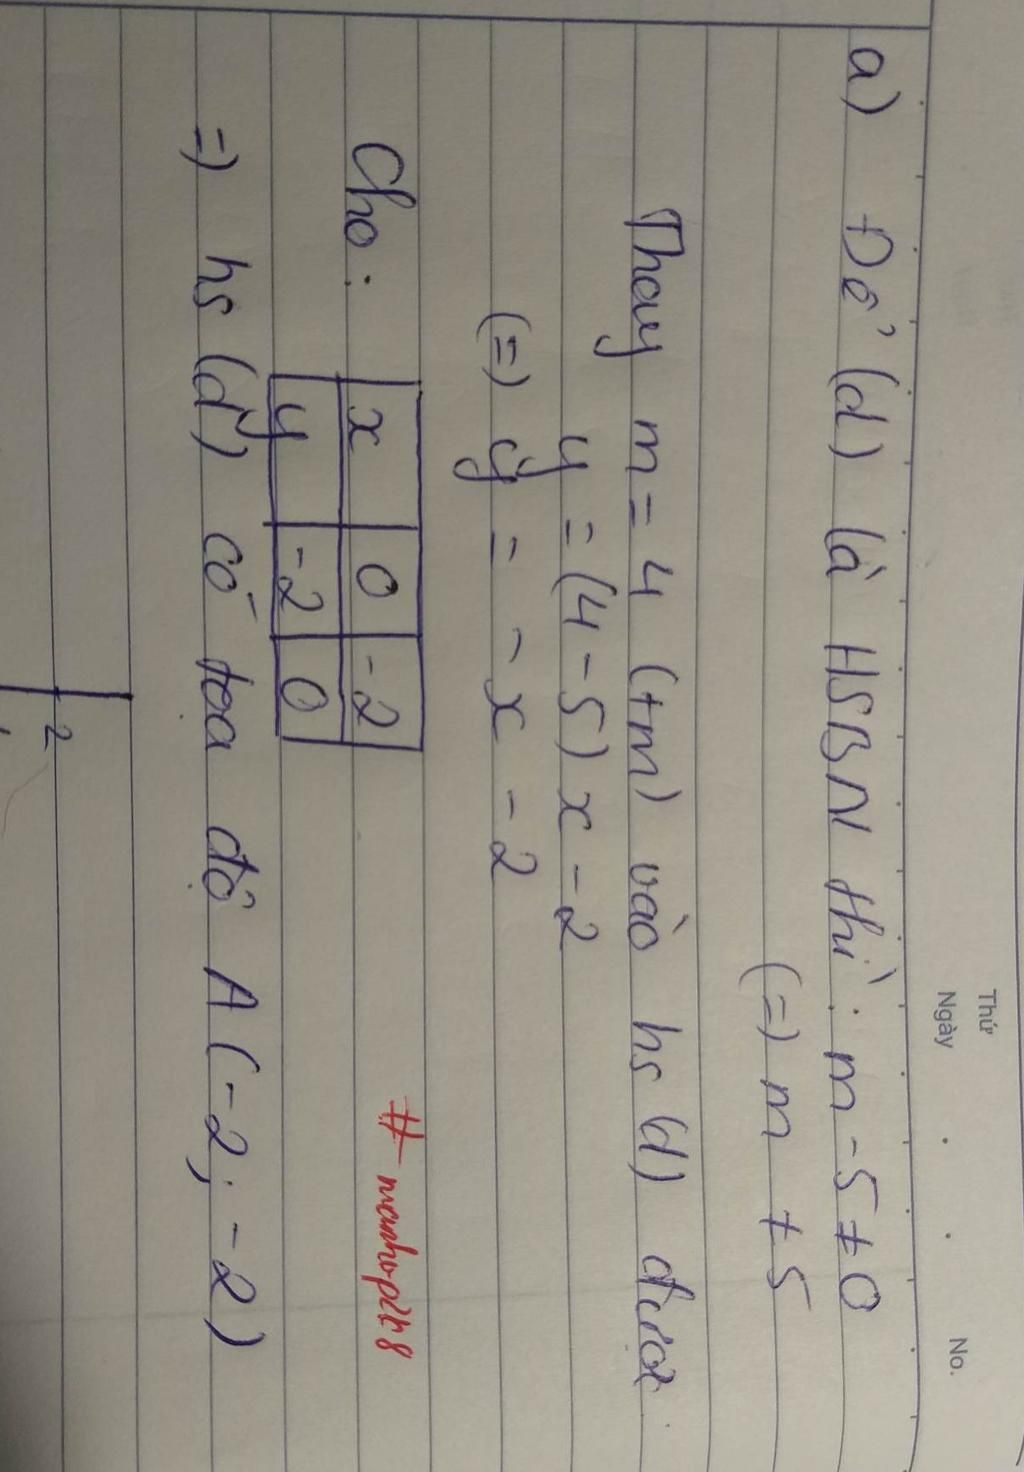 Thứ
Ngày
No.
a) Để (d) là HSBN thì : m - 5 ≠ 0
(=) m ≠ 5
Thay m = 4 (tm) vào hs (d) được
y = (4 - 5) x - 2
(=) y = - x - 2
Cho : x 0 -2
y -2 0
=) hs (d) có tọa độ A (-2; -2)
2